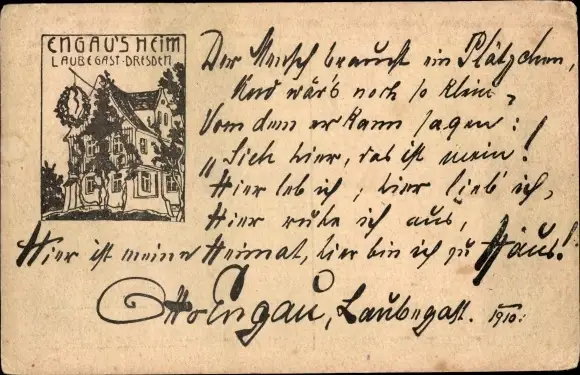 ENGAU'S HEIM
LAUBEGAST-DRESDEN
Der Mensch braucht ein Plätzchen,
Und wär's noch so klein,
Von dem er kann sagen:
„Sieh hier, das ist mein!
Hier leb ich, hier lieb' ich,
Hier ruhe ich aus,
Hier ist meine Heimat, hier bin ich zu Haus!"
Otto Engau, Laubegast. 1910.